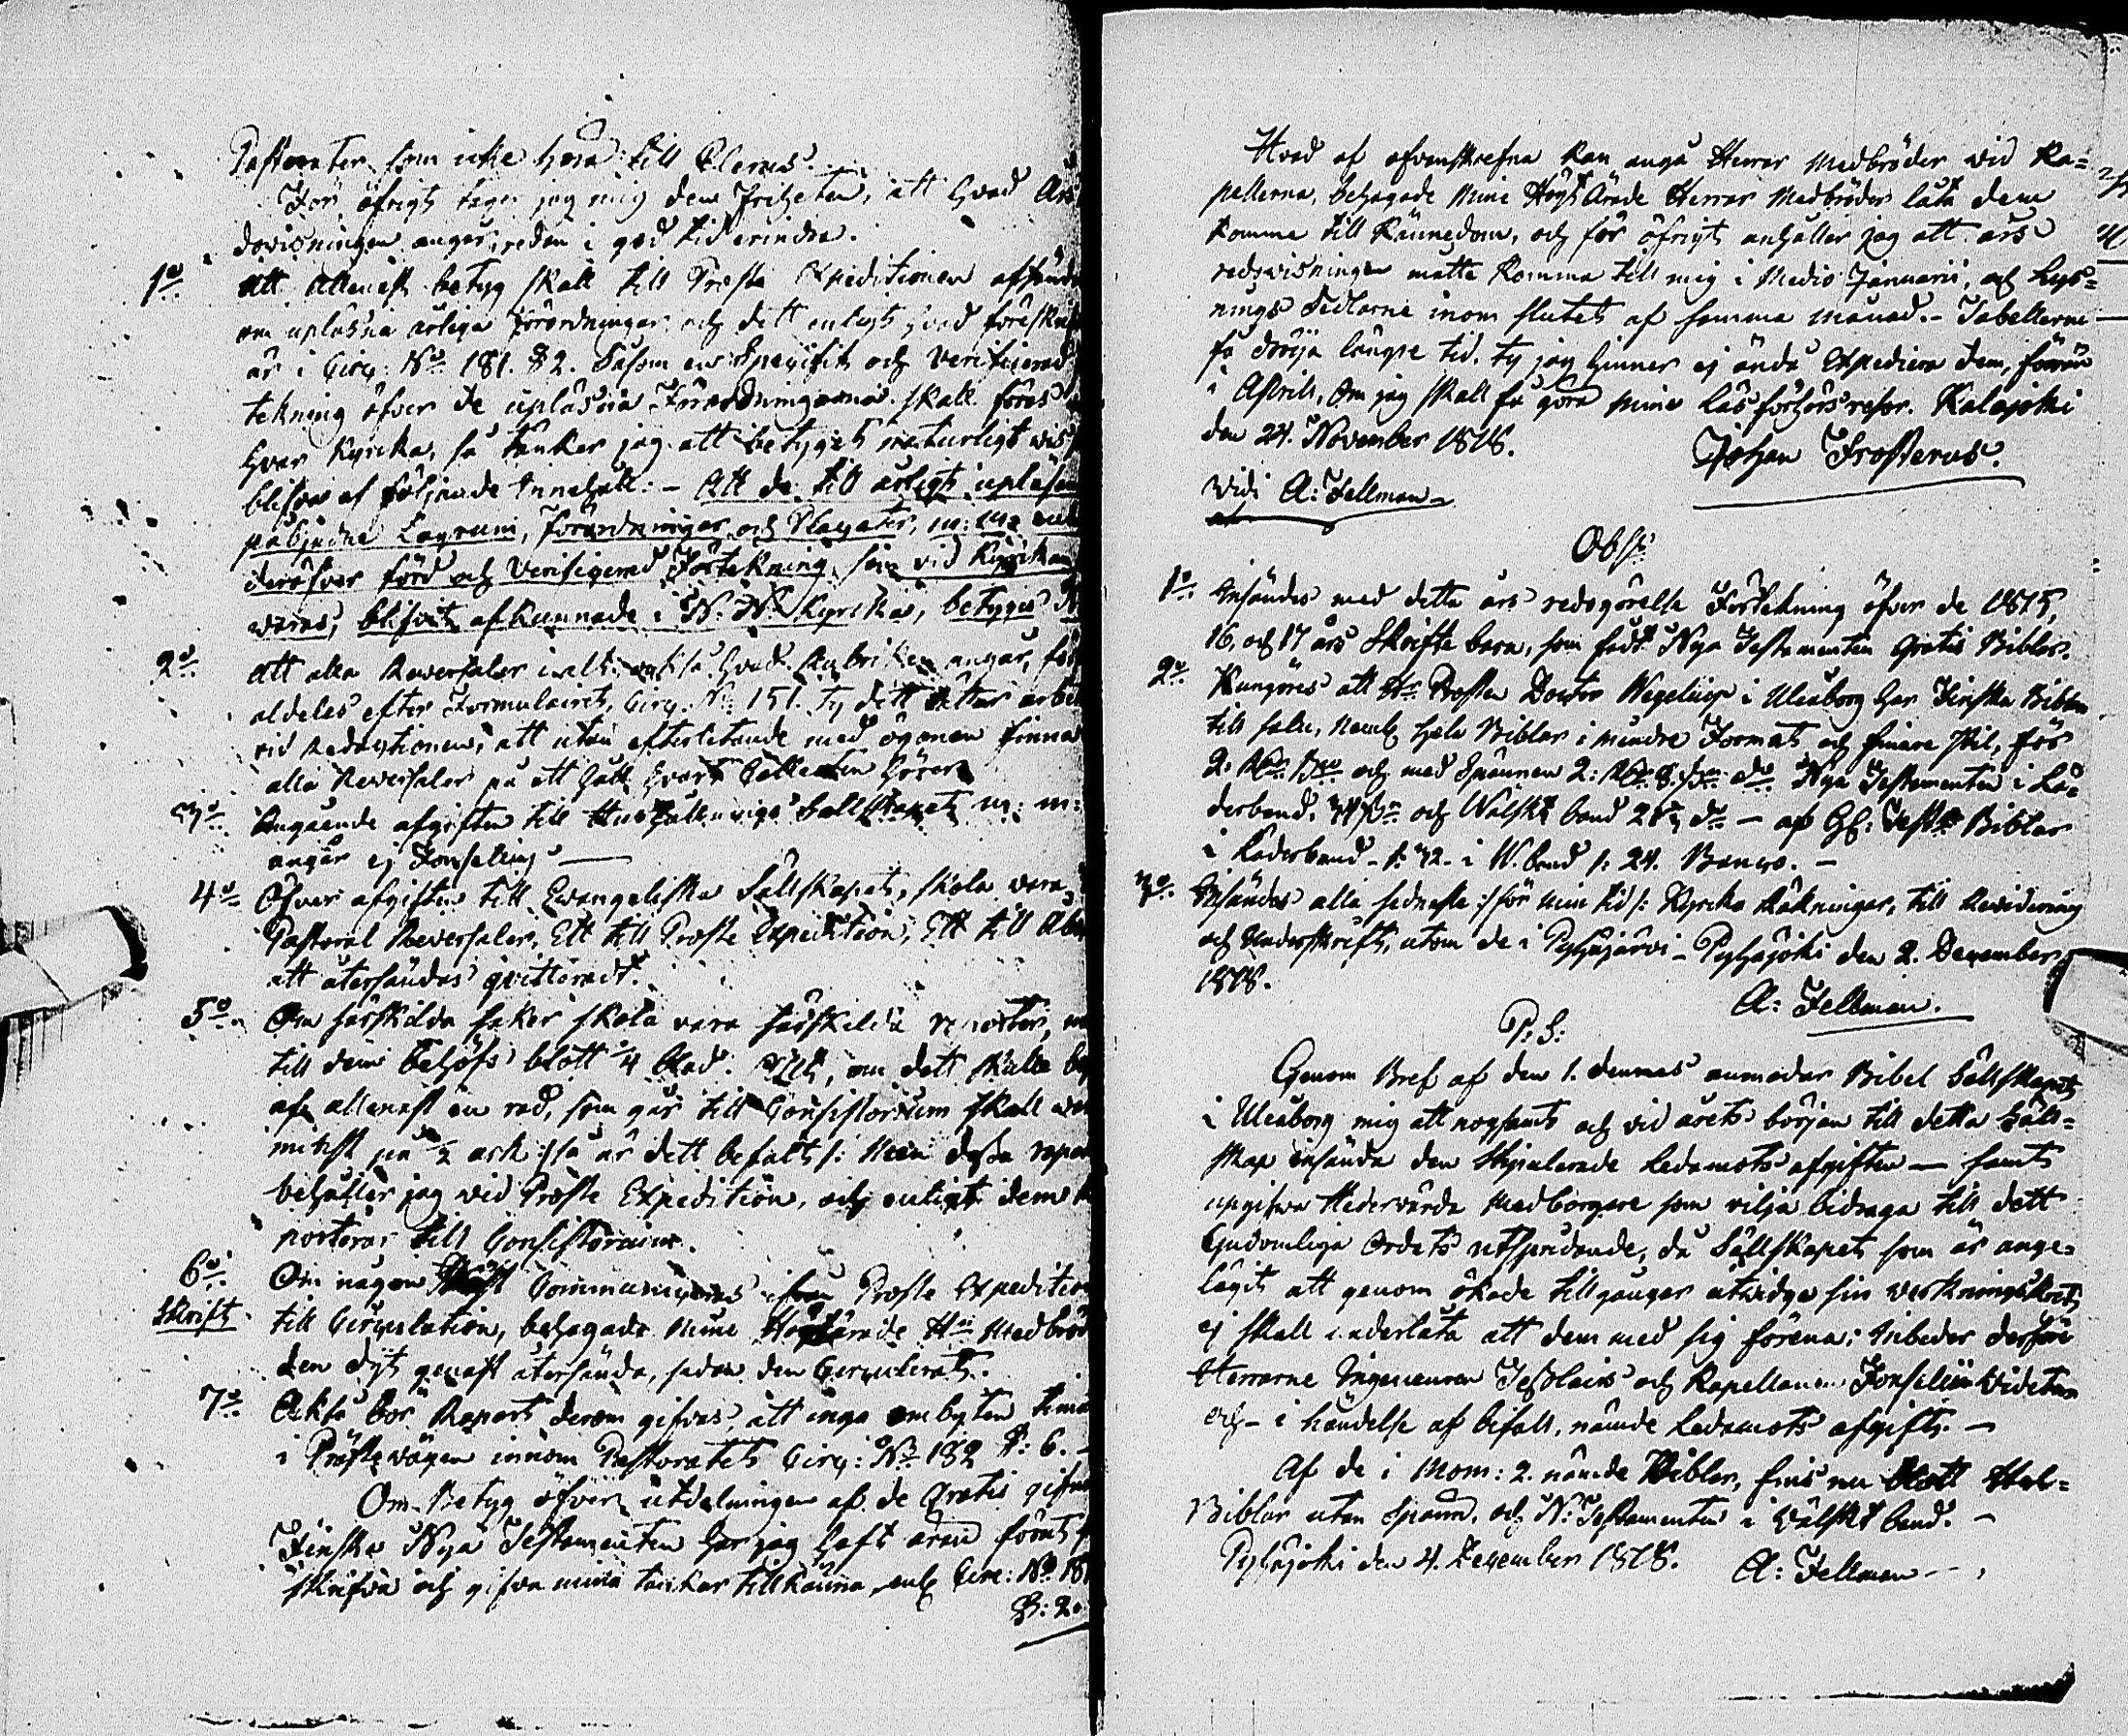 Pastorater som icke höra till Clerus.
För öfrigt tager jag mig den friheten, att hvad Års
dovisningen angår, redan i god tid erindra.
1o Att allenast betyg skall till Proste Expeditionen afsända
om uplästa årliga Förordningar och dett enligt hvad föreskrif
är i Circ: No 181. §2. Såsom en Specifik och Verificerad
tekning öfver de uplästa Förordningarna skall föras
hvar Kyrcka, så tänker jag att betyget naturligt vis
blifva af följande innehåll: – Att de till årligt upläsan
påbjudna Lagrum, Förordningar och Placater, m: m:
deröfver förd och Verificerad Förtekning, som vid Kyrckan
varas, blifvit afkunnade i N. N. Kyrcka, betygas
2o Att alla Reversaler i allt hvad Rubriken angår,
aldeles efter Formulairet, Circ. No 151. Ty dett lättar arbe
vid Redactionen, att utan efterletande med ögonen finna
alla Reversaler på ett håll hvart Collecten hörer
3o Angående afgiften till Hushållnings Sällskapet m: m:
angår ej Fonselius –
4o Öfver afgiften till Evangeliska Sällskapet, skola vara
Pastoral Reversaler, Ett till Proste Expedition, Ett till Åbo
att återsändas qvitteradt.
5o Om särskilda saker skola vara särskilda reporter,
till dem behöfs blott 1/4 blad. Allt, om dett skulle be
af allenast en rad, som går till Consistorium skall
minst på 1/2 ark :/ så är dett befalt /: Men dessa rapor
behåller jag vid Proste Expedition, och enligt dem
porterar till Consistorium.
6o Om någon Communiceras ifrån Proste Expedition
Skrift. till Circulation, behagade mine Högtärade Hrr Medbröd
den dyt genast återsända, sedan den Circulerat.
7o Också bör Raport derom gifvas, att inga ombyten tima
i Prästevägen innom Pastoratet Circ: No 182 §: 6. –
Om Betyg öfver utdelningen af de Gratis gifna
Finska Nya Testamenten har jag haft äran förut
skrifva och gifva mina tankar tillkänna enl. Circ: No 18
§: 2.
Hvad af ofvanskrefna kan angå Herrar Medbröder vid Ka=
pellerna, behagade mine Högt Ärade Herrar Medbröder låta dem
komma till kännedom, och för öfrigt anhåller jag att års
redovisningen måtte komma till mig i Medio Januarii, och Lys=
nings Sedlarne inom slutet af samma månad. – Tabellerne
få dröja längre tid, ty jag hinner ej ändå Expediera dem, förrän
i Aprill, Om jag skall få göra mine läsförhörs resor. Kalajoki
den 24. November 1818.
Johan Frosterus.
Vidi A: Fellman
Obs:
1o Insändes med detta års redogörelse Förtekning öfver de 1815,
16, och 17 års Skrifte barn, som fådt Nya Testamenten Gratis Biblar.
2o Kungöres att Hr Prosten Doctor Wegelius i Uleåborg har Finska Biblar
till salu, neml. hela Biblar i mindre Format och finare stil, för
2. Rbr och med Spännen 2: Rbr 8: do Nya Testamenten i Lä=
derband, och Wälskt band 28 do – af Gl: Test Biblar
i Läderband – §: 42. i W. band §: 24. Banco. –
3o Insändes alla sednaste :/ för min tid /: Kyrcko Räkningar, till Revidering
och Underskrift, utom de i Pyhäjärvi – Pyhäjoki den 2. December
1818.
A: Fellman.
P: S:
Genom Bref af den 1. dennes anmodar Bibel Sällskapet
i Uleåborg mig att nogsamt och vid årets början till detta Säll=
skap insända den Stipulerade Ledamots afgiften – samt
upgifva Hedervärda Medborgare som vilja bidraga till dett
Gudomliga Ordets utspridande, då Sällskapet som är ange=
lägit att genom ökade tillgångar utvidga sin verkningskrets
ej skall underlåta att dem med sig förena: Inbeder derföre
Herrarne Ingenieuren och Kapellanen Fonselius
och – i händelse af bifall, nämde Ledamots afgift. –
Af de i Mom: 2. nämde Biblar, fins nu blott Hel=
Biblar utan Spänn, och N: Testamenten i Wälskt band. –
Pyhäjoki den 4. December 1818. A: Fellman